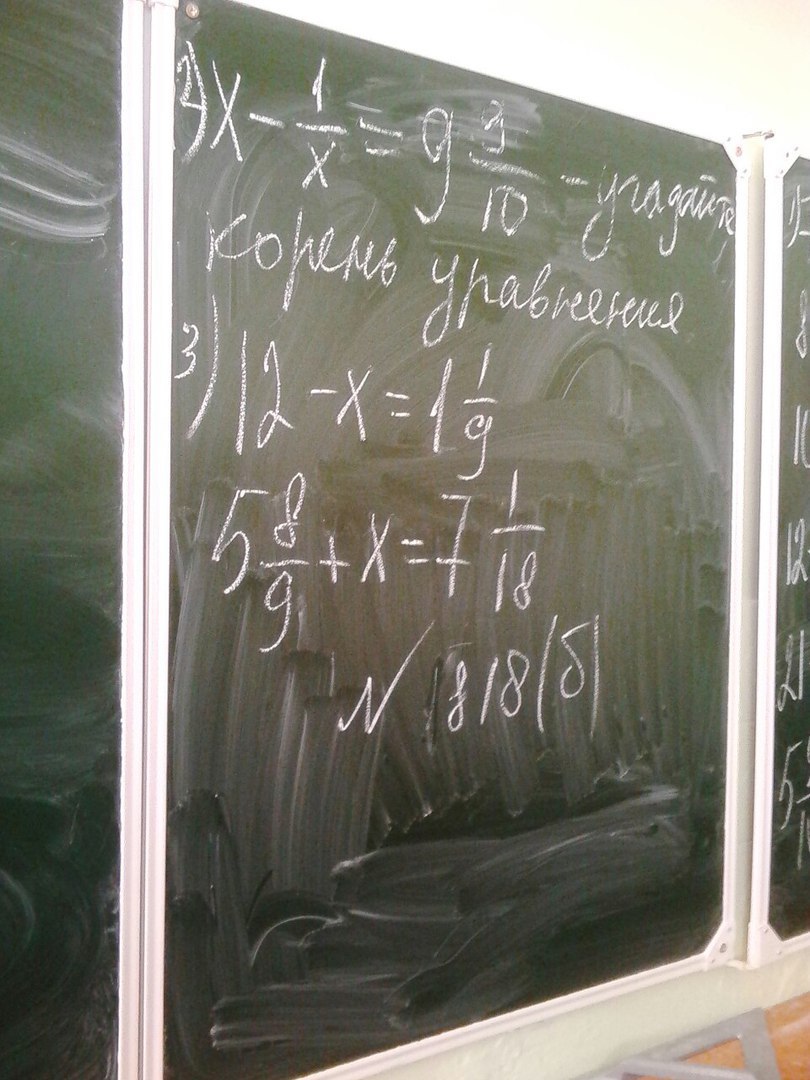 2) x - 1/x = 9 9/10 - угадайте
корень уравнения
3) 12 - x = 1 1/9
5 8/9 + x = 7 1/18
N 1818(б)
12
21